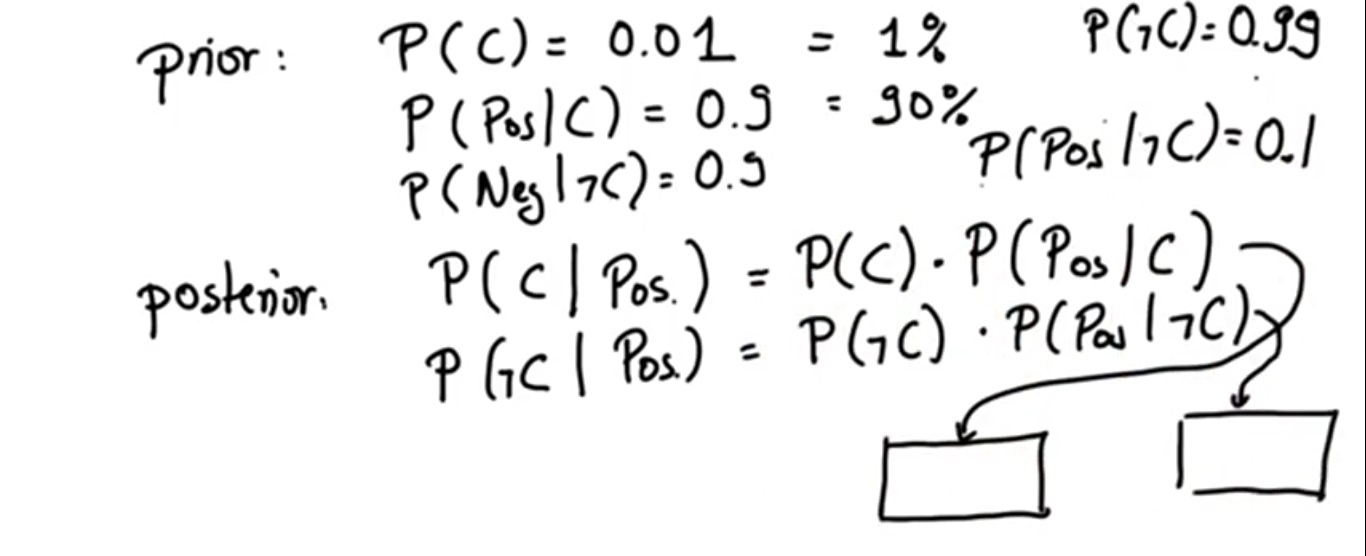 prior: P(C) = 0.01 = 1% P(¬C) = 0.99
P(Pos|C) = 0.9 = 90%
P(Neg|¬C) = 0.9 P(Pos|¬C) = 0.1
posterior: P(C|Pos.) = P(C)·P(Pos|C)
P(¬C|Pos.) = P(¬C)·P(Pos|¬C)